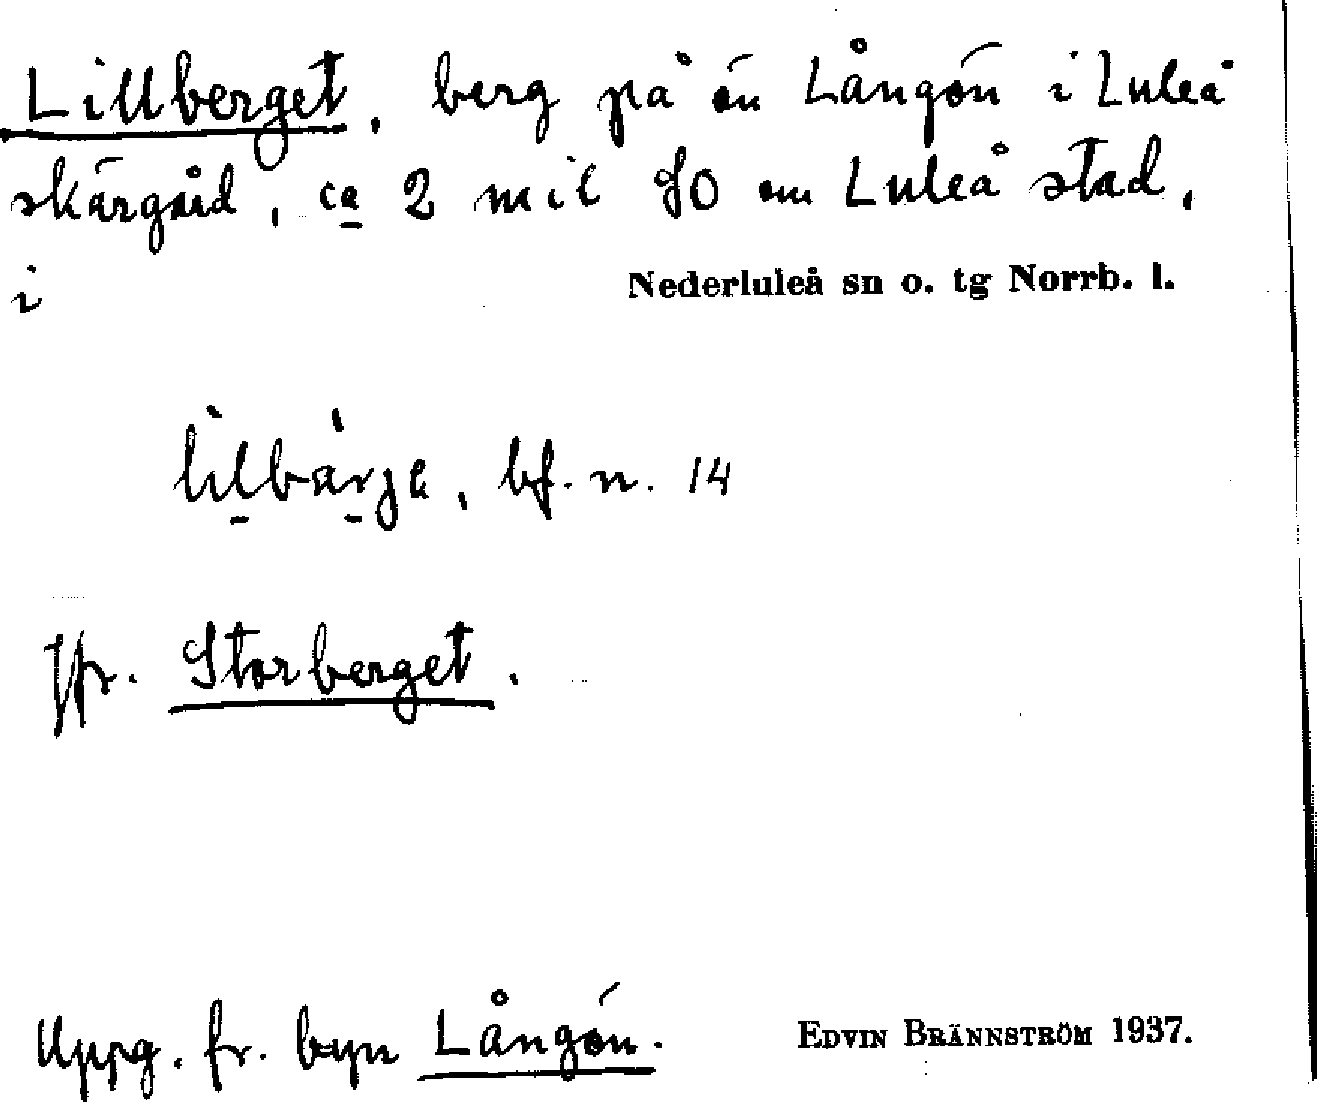 Lillberget, berg på ön Långön i Luleå
skärgård, ca 2 mil SO om Luleå stad,
i
Nederluleå sn o. tg Norrb. l.
bf. n. 14
Jfr. Storberget.
Uppg. fr. byn Långön.
EDVIN BRÄNNSTRÖM 1937.